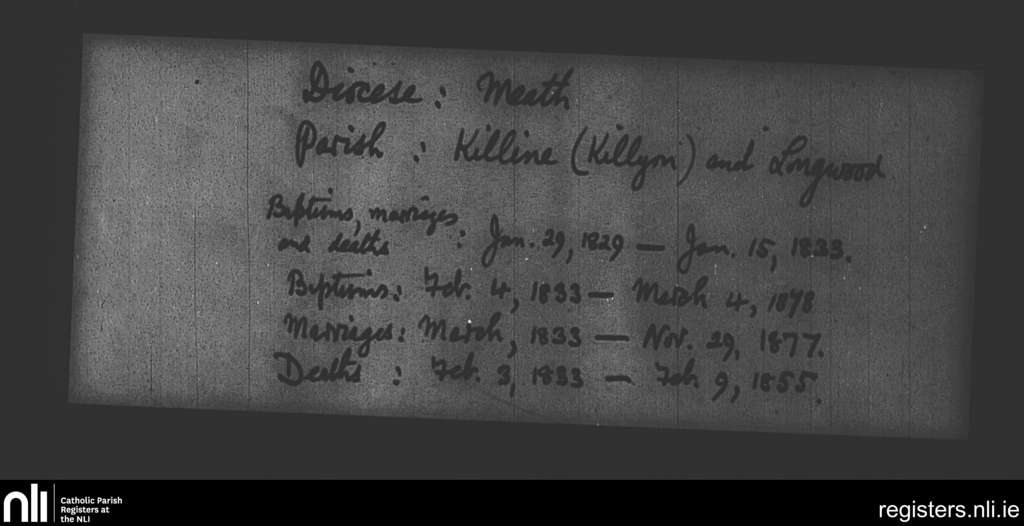 Diocese : Meath
Parish : Killine (Killyon) and Longwood
Baptisms, marriages
and deaths : Jan. 29, 1829 — Jan. 15, 1833.
Baptisms : Feb. 4, 1833 — March 4, 1878
Marriages : March, 1833 — Nov. 29, 1877.
Deaths : Feb. 3, 1833 — Feb. 9, 1855.
nli
Catholic Parish
Registers at
the NLI
registers.nli.ie